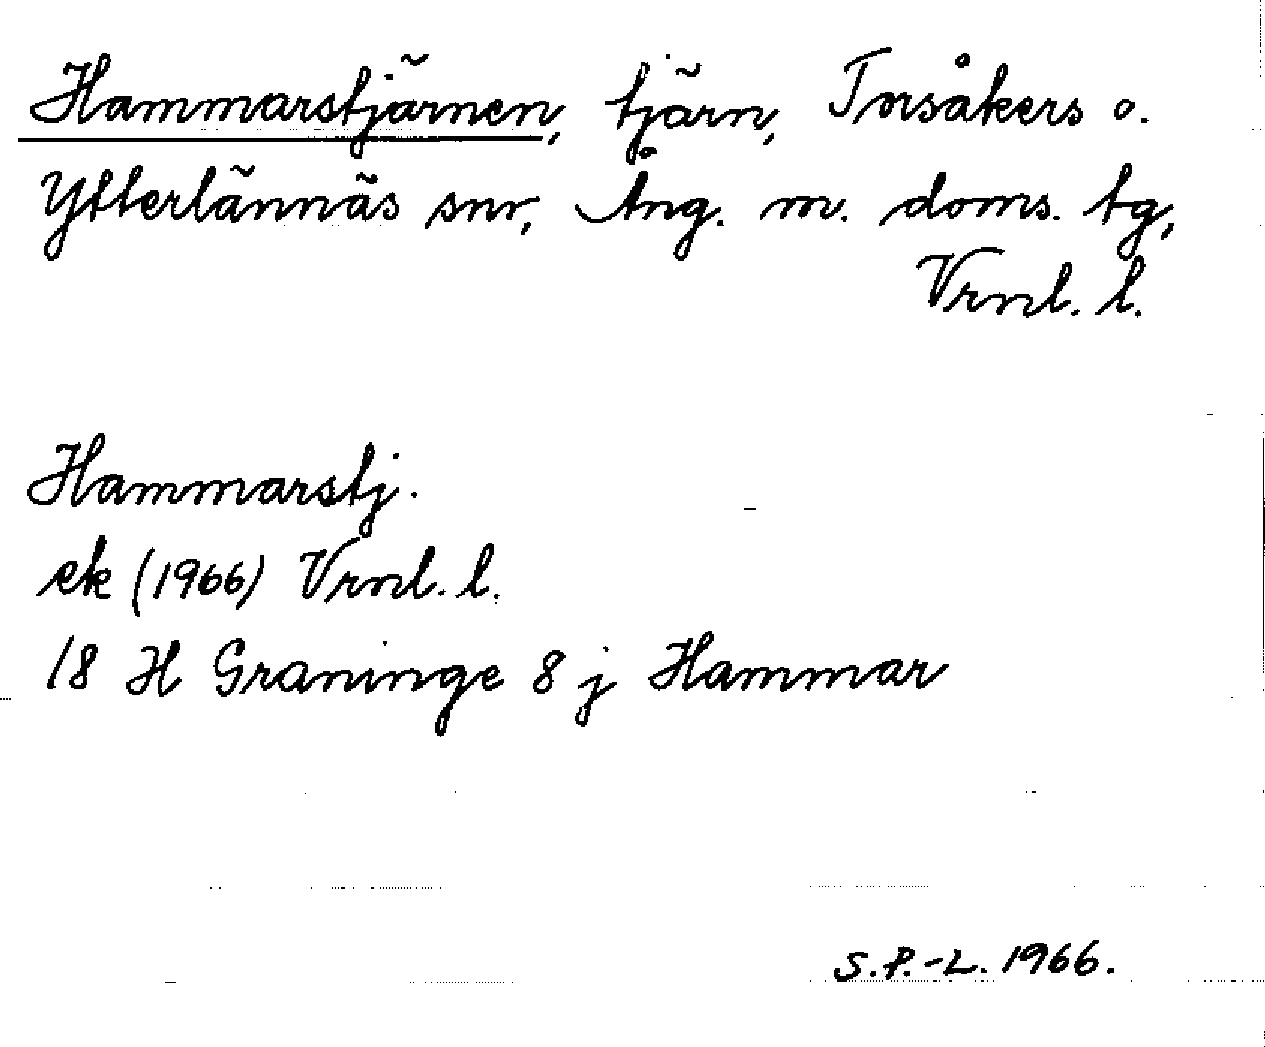 Hammarstjärnen, tjärn, Torsåkers o.
Ytterlännäs snr, Ång. m. doms. tg,
Vrnl. l.
Hammarstj.
ek (1966) Vrnl. l.
18 H Graninge 8 j Hammar
S.P.-L. 1966.